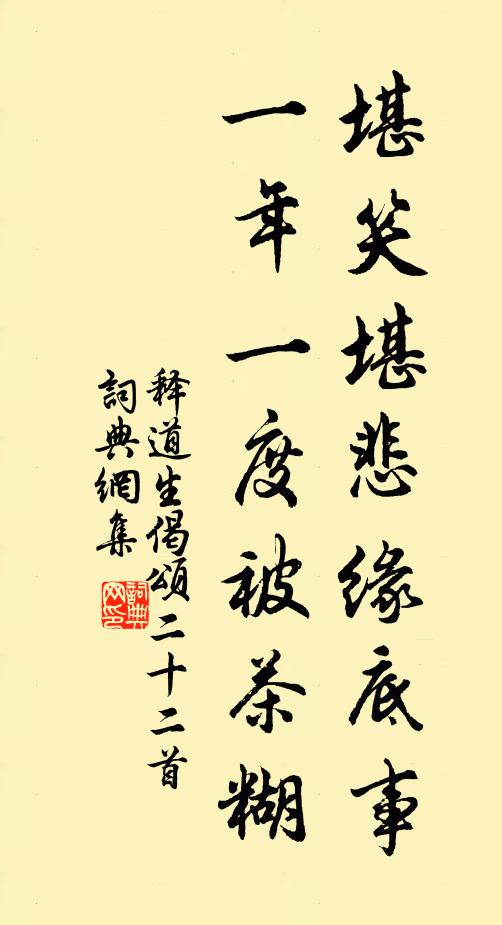 堪笑堪悲缘底事
一年一度被茶糊
释道生偈颂二十二首
詞典網集
詞典網印